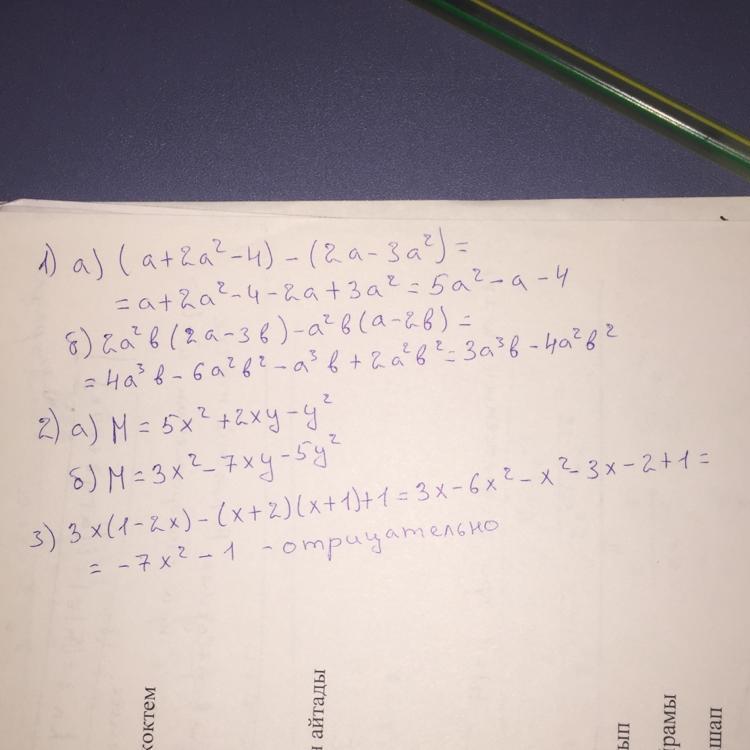 1) а) (a+2a²-4)-(2a-3a²)=
=a+2a²-4-2a+3a²=5a²-a-4
б) 2a²b(2a-3b)-a²b(a-2b)=
=4a³b-6a²b²-a³b+2a²b²=3a³b-4a²b²
2) а) M=5x²+2xy-y²
б) M=3x²-7xy-5y²
3) 3x(1-2x)-(x+2)(x+1)+1=3x-6x²-x²-3x-2+1=
=-7x²-1 - отрицательно
коктем
айтады
ып
рамы
шап